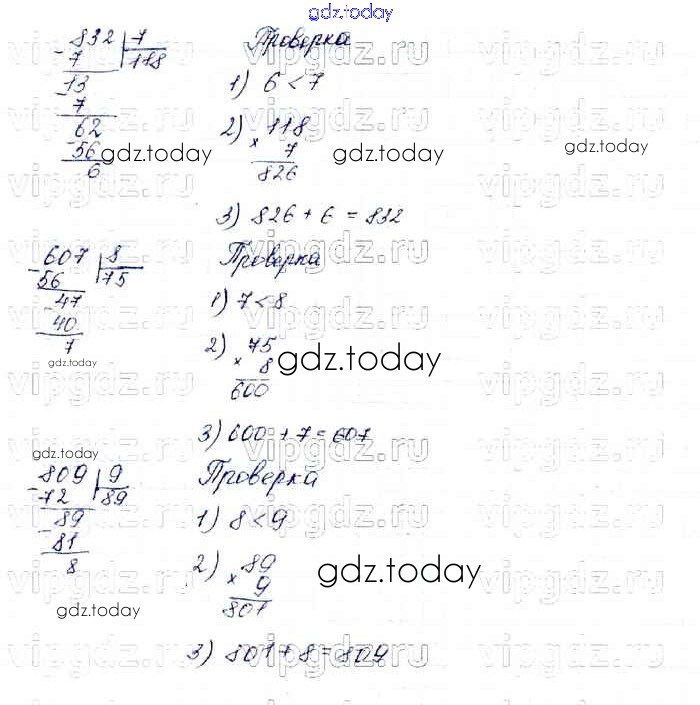 gdz.today
832 7 Проверка
7 118
13 1) 6 < 7
7
62 2) 118
56 × 7
6 826
gdz.today gdz.today gdz.today
3) 826 + 6 = 832
607 8 Проверка
56 75
47 1) 7 < 8
40
7 2) 75
× 8
600
gdz.today gdz.today
3) 600 + 7 = 607
gdz.today
809 9 Проверка
72 89
89 1) 8 < 9
81
8 2) 89
× 9
801
gdz.today gdz.today
3) 801 + 8 = 809
vipgdz.ru